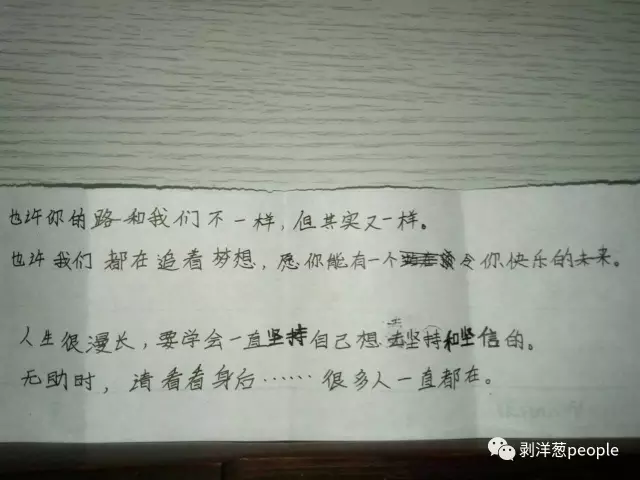 也许你的路和我们不一样，但其实又一样。
也许我们都在追着梦想，愿你能有一个令你快乐的未来。
人生很漫长，要学会一直坚持自己想去坚持和坚信的。
无助时，请看看身后……很多人一直都在。
剥洋葱people